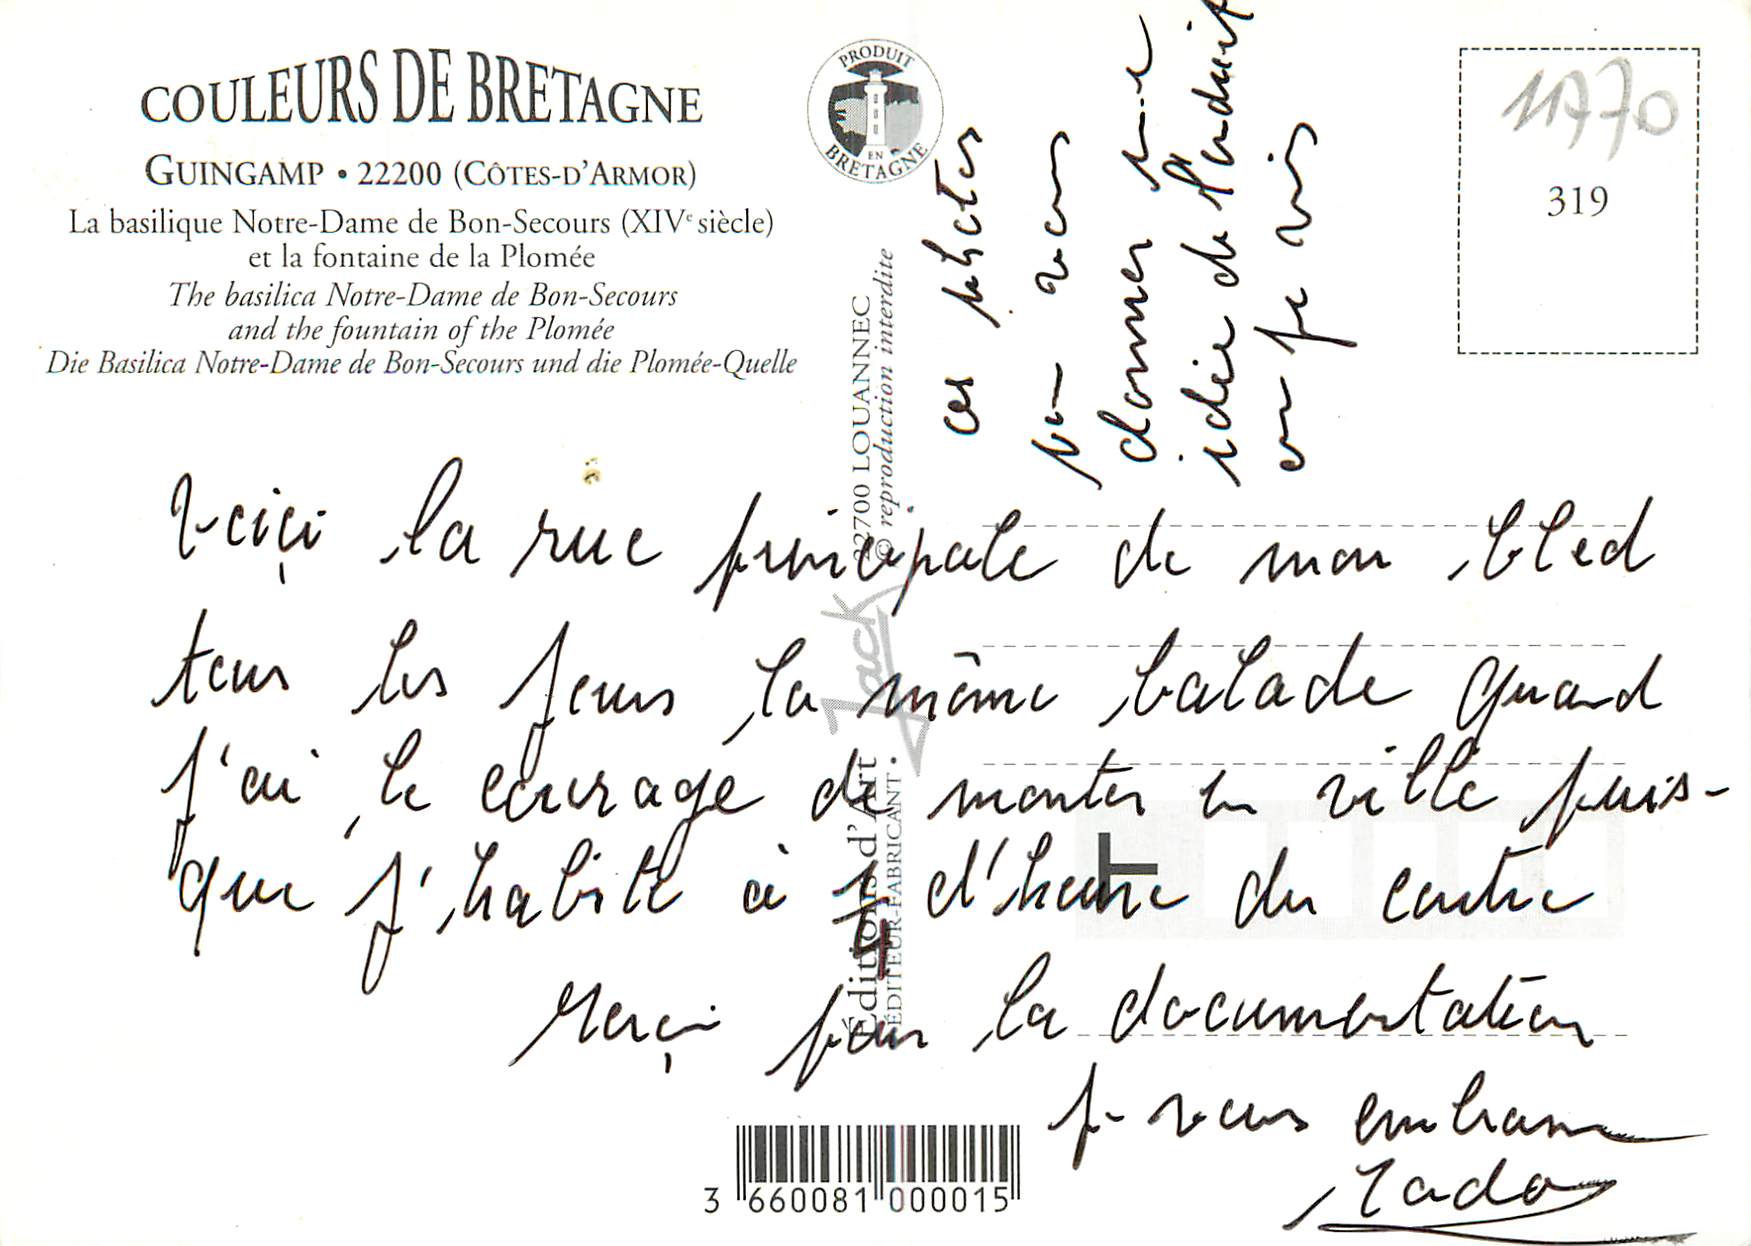 COULEURS DE BRETAGNE
GUINGAMP • 22200 (CÔTES-D'ARMOR)
La basilique Notre-Dame de Bon-Secours (XIVe siècle)
et la fontaine de la Plomée
The basilica Notre-Dame de Bon-Secours
and the fountain of the Plomée
Die Basilica Notre-Dame de Bon-Secours und die Plomée-Quelle
PRODUIT
EN
BRETAGNE
11970
319
Éditions d'Art Jack 22700 LOUANNEC
ÉDITEUR-FABRICANT • © reproduction interdite
ces photos
pour vous
donner une
idée de l'endroit
où je vis
Voiçi la rue principale de mon bled
tous les jours la même balade quand
j'ai le courage de monter en ville puis-
que j'habite à d'heure du centre
Merçi pour la documentation
je vous embrasse
3 660081 000015